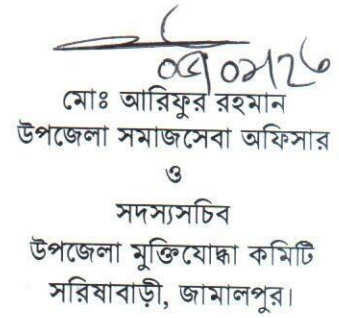 মোঃ আরিফুর রহমান
উপজেলা সমাজসেবা অফিসার
ও
সদস্যসচিব
উপজেলা মুক্তিযোদ্ধা কমিটি
সরিষাবাড়ী, জামালপুর।